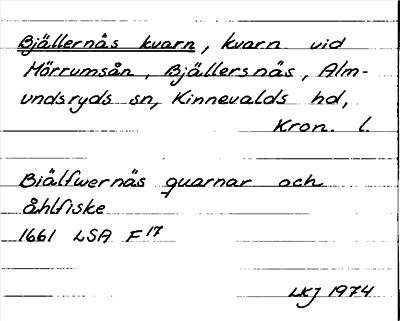 Bjällernäs kvarn, kvarn vid
Mörrumsån, Bjällersnäs, Alm-
undsryds sn, Kinnevalds hd,
Kron. l.
Biälfwernäs quarnar och
åhlfiske
1661 LSA F 17
LKJ 1974